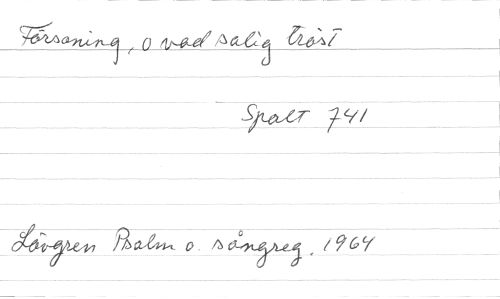 Försoning, o vad salig tröst
Spalt 741
Lövgren Psalm o. sångreg. 1964